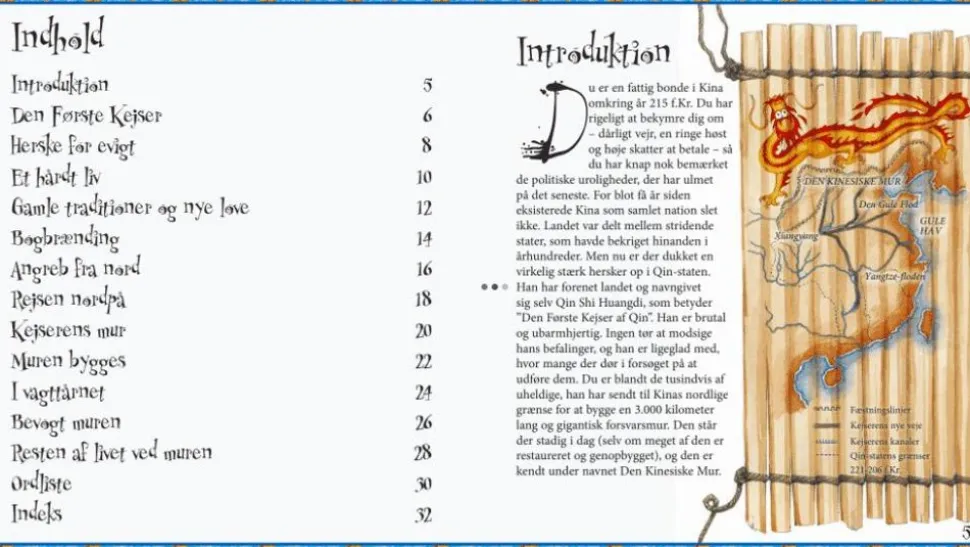 Indhold
Introduktion 5
Den Første Kejser 6
Herske for evigt 8
Et hårdt liv 10
Gamle traditioner og nye love 12
Bogbrænding 14
Angreb fra nord 16
Rejsen nordpå 18
Kejserens mur 20
Muren bygges 22
I vagttårnet 24
Bevogt muren 26
Resten af livet ved muren 28
Ordliste 30
Indeks 32
Introduktion
Du er en fattig bonde i Kina
omkring år 215 f.Kr. Du har
rigeligt at bekymre dig om
– dårligt vejr, en ringe høst
og høje skatter at betale – så
du har knap nok bemærket
de politiske uroligheder, der har ulmet
på det seneste. For blot få år siden
eksisterede Kina som samlet nation slet
ikke. Landet var delt mellem stridende
stater, som havde bekriget hinanden i
århundreder. Men nu er der dukket en
virkelig stærk hersker op i Qin-staten.
Han har forenet landet og navngivet
sig selv Qin Shi Huangdi, som betyder
”Den Første Kejser af Qin”. Han er brutal
og ubarmhjertig. Ingen tør at modsige
hans befalinger, og han er ligeglad med,
hvor mange der dør i forsøget på at
udføre dem. Du er blandt de tusindvis af
uheldige, han har sendt til Kinas nordlige
grænse for at bygge en 3.000 kilometer
lang og gigantisk forsvarsmur. Den står
der stadig i dag (selv om meget af den er
restaureret og genopbygget), og den er
kendt under navnet Den Kinesiske Mur.
DEN KINESISKE MUR
Den Gule Flod
GULE
HAV
Xiangyang
Yangtze-floden
Fæstningslinjer
Kejserens nye veje
Kejserens kanaler
Qin-statens grænser
221-206 f.Kr.
5